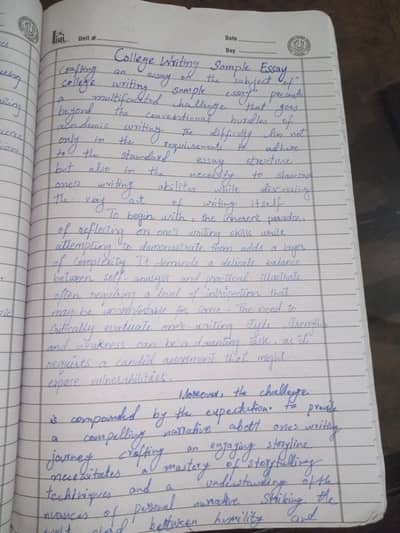 Unit #
Date
Day
College Writing Sample Essay
crafting an essay on the subject of
"college writing sample essay" presents
a multifaceted challenge that goes
beyond the conventional hurdles of
academic writing The difficulty lies not
only in the requirements to adhere
to the standard essay structure
but also in the necessity to showcase
one's writing abilities while discussing
the very art of writing itself
To begin with, the inherent paradox
of reflecting on one's writing skills while
attempting to demonstrate them adds a layer
of complexity It demands a delicate balance
between self-analysis and practical illustrate
often requiring a level of introspection that
may be uncomfortable for some. The need to
critically evaluate one's writing style strengths
and weakness can be a daunting task, as it
requires a candid assessment that might
expose vulnerabilities.
Moreover, the challenge
is compounded by the expectation to provide
a compelling narrative about one's writing
journey crafting an engaging storyline
necessitates a mastery of storytelling
techniques and a understanding of the
nuances of personal narrative Striking the
between humility and